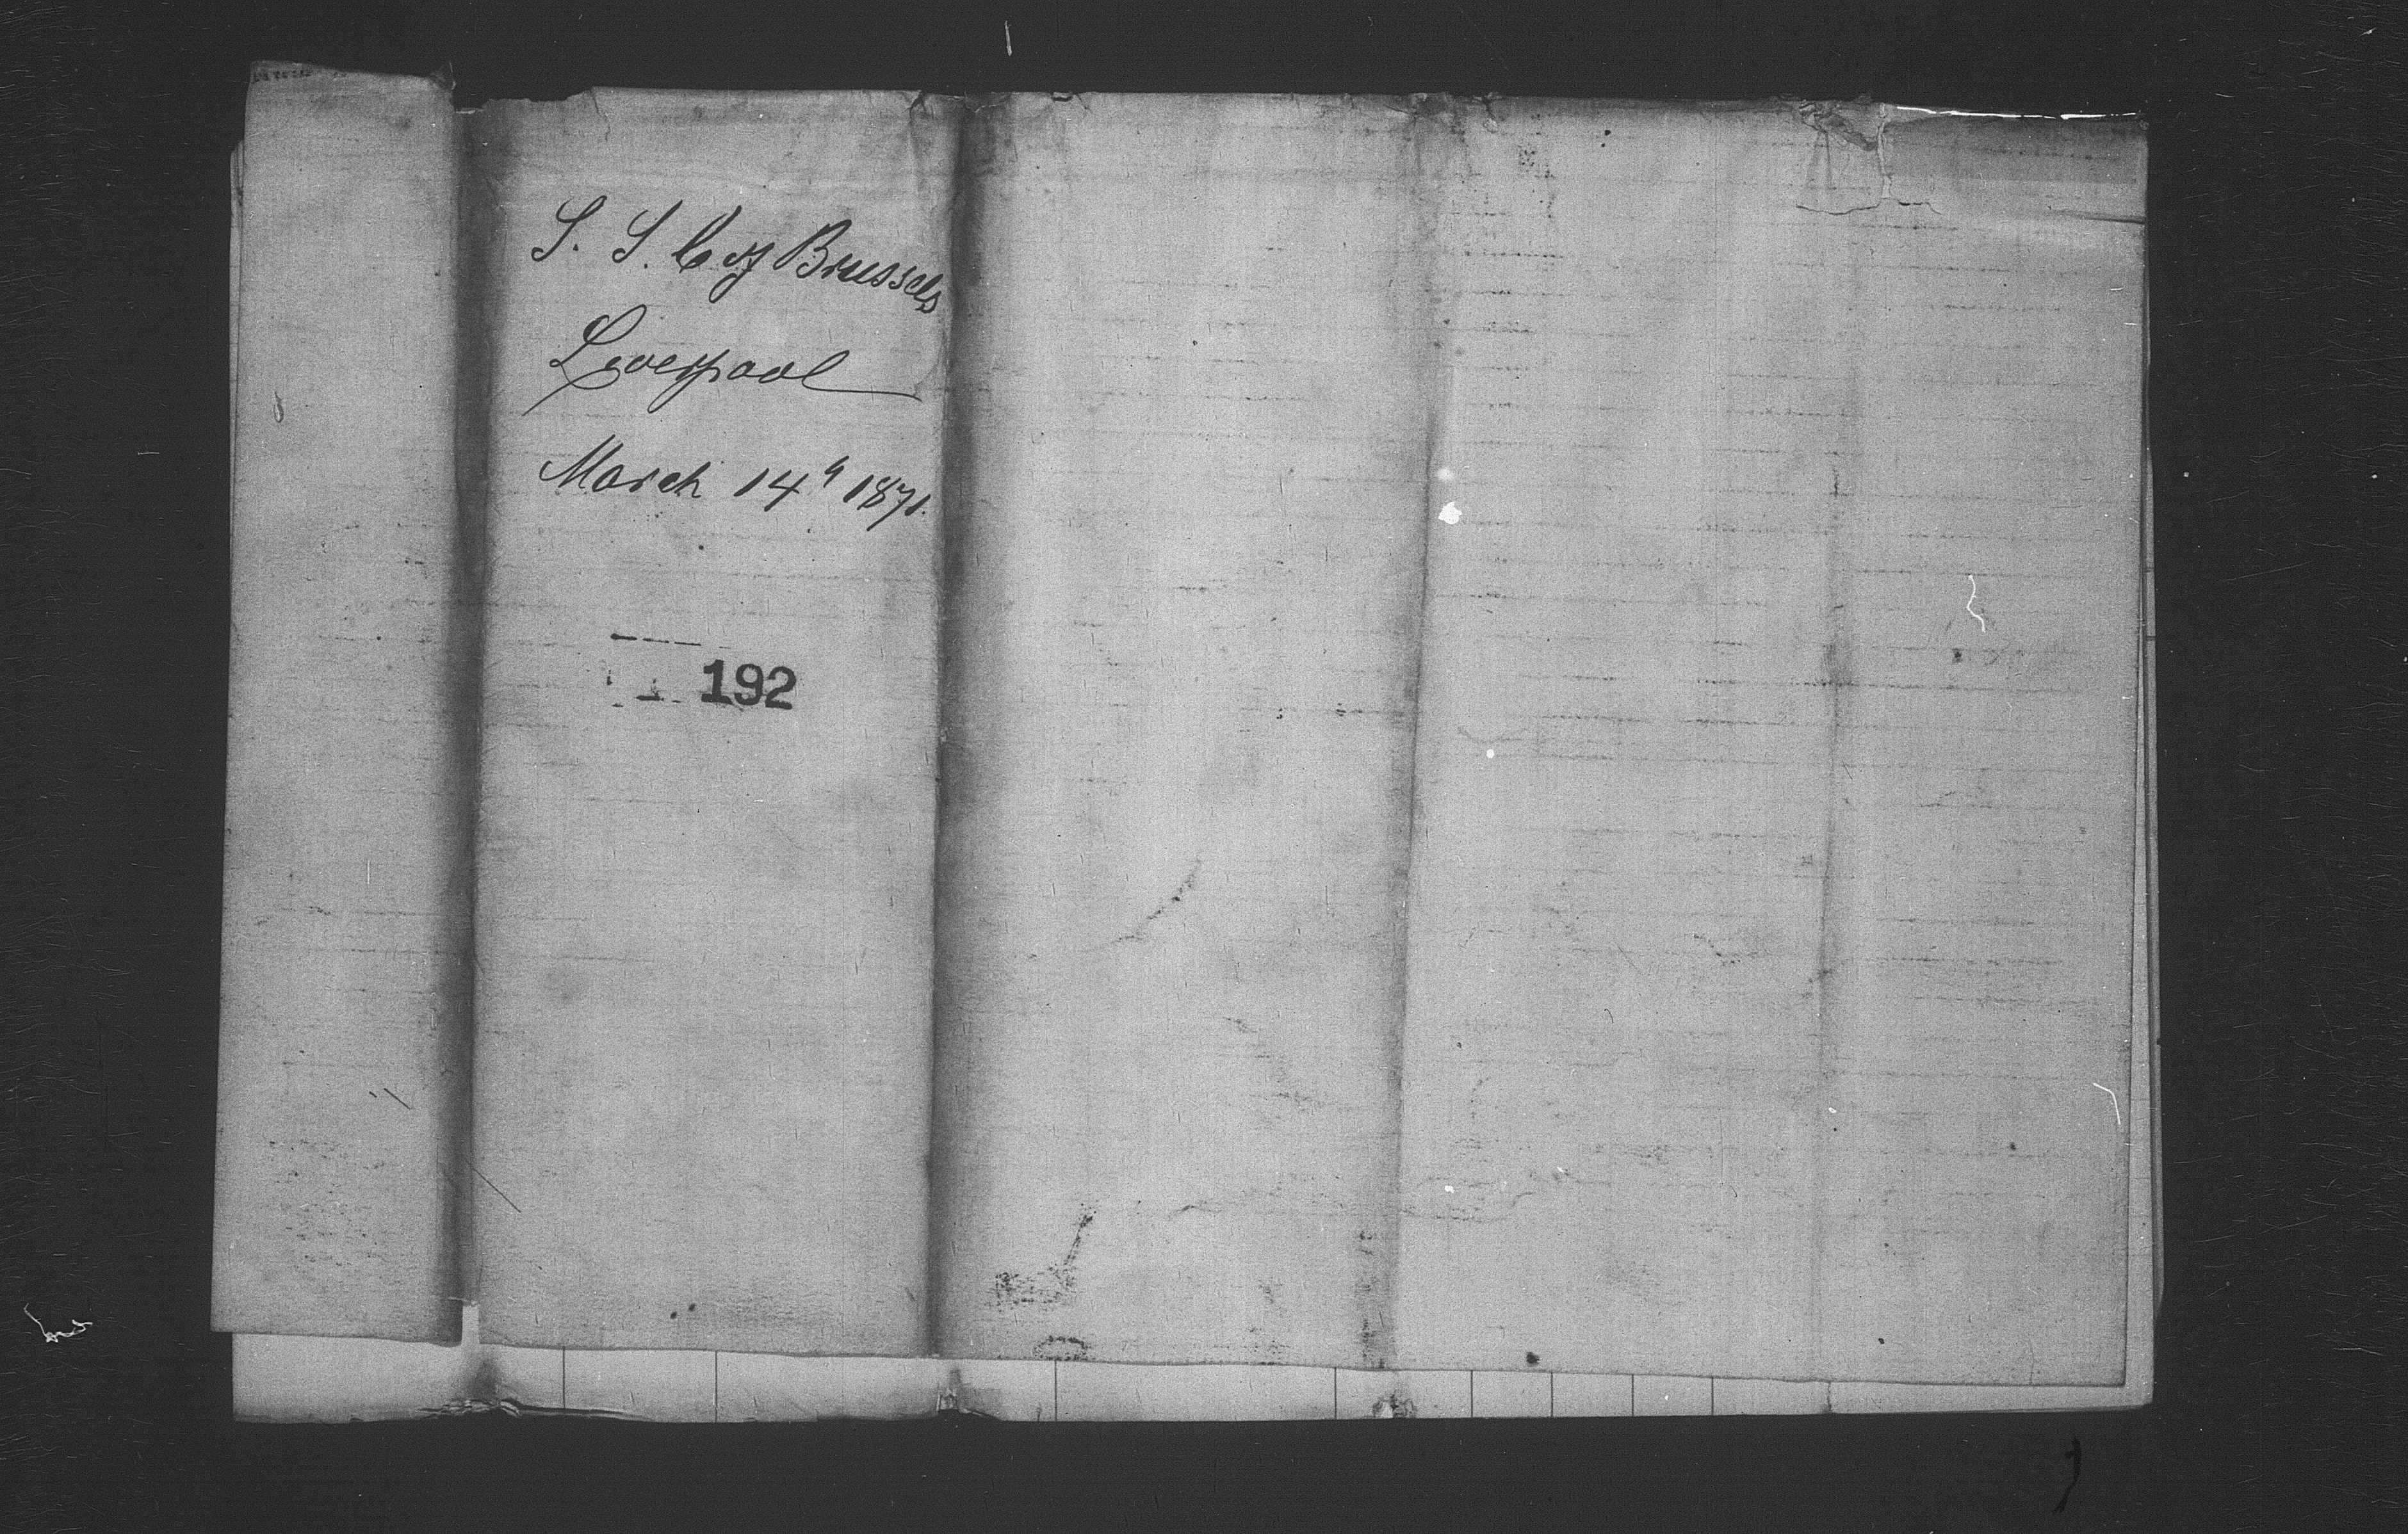 S. S. C of Brussels
Liverpool
March 14th 1871.
192